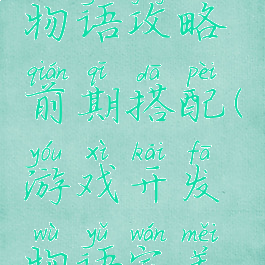 物语攻略
qián qī dā pèi
前期搭配(
yóu xì kāi fā
游戏开发
wù yǔ wán měi
物语完美